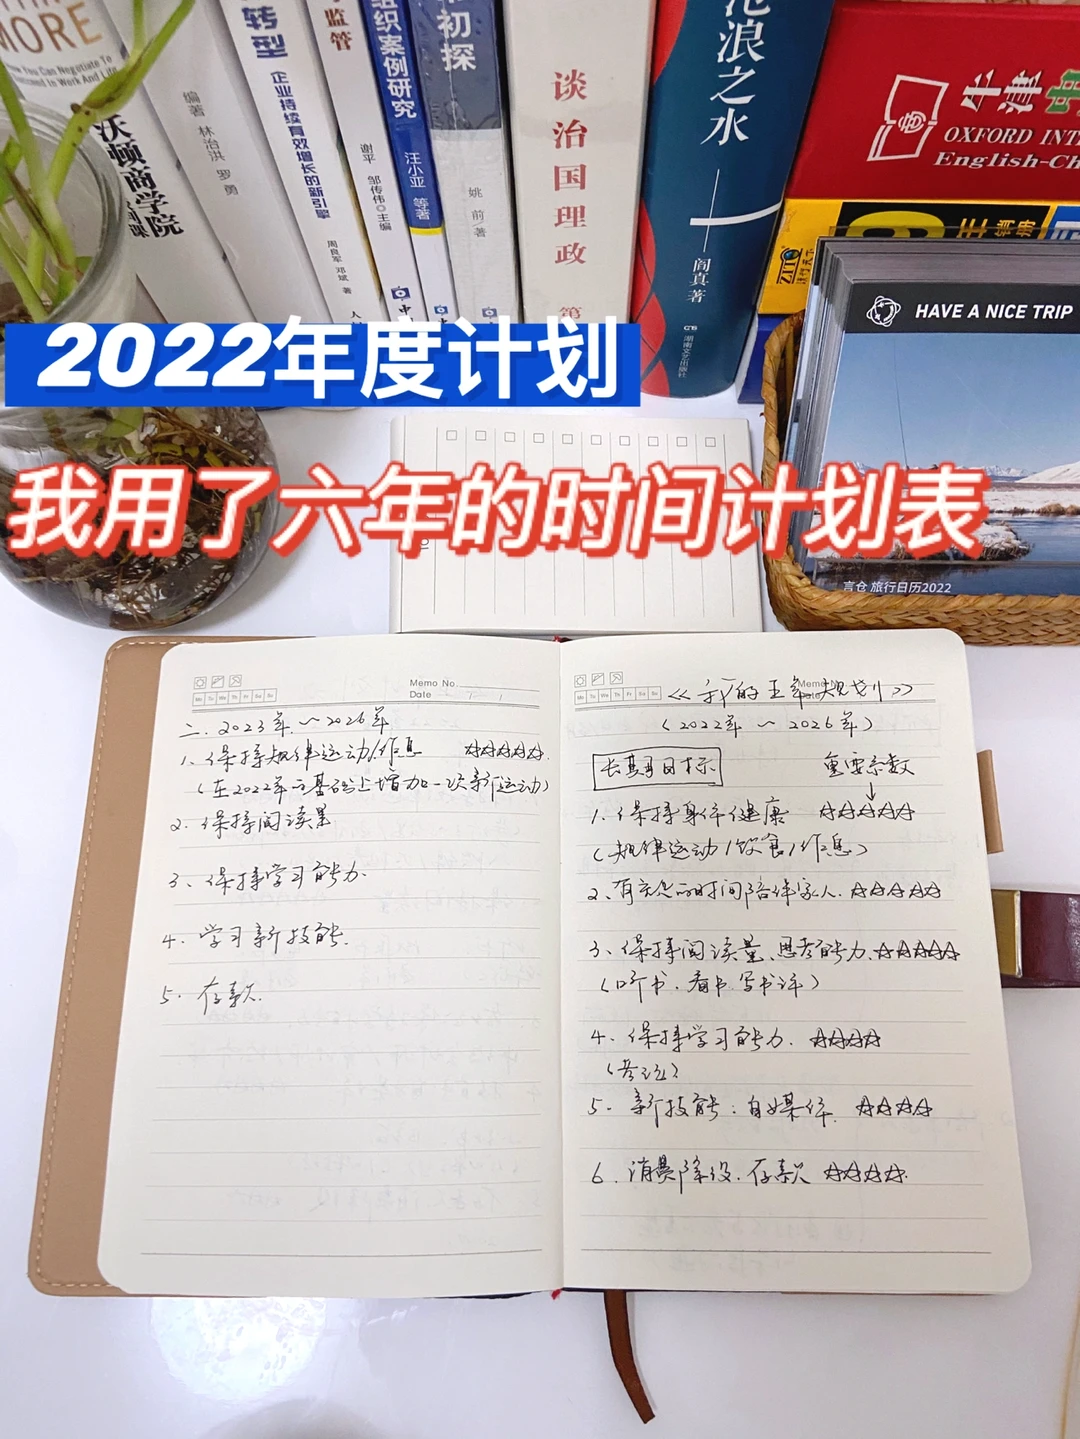 MORE
You Can Negotiate To
Succeed in Work And Life
沃顿商学院
编著 林治洪 罗勇
转型 企业持续有效增长的新引擎
周良军 邓斌 著
监管
谢平 邹传伟◎主编
组织案例研究
汪小亚 等著
初探
姚前 著
谈治国理政 第
沧浪之水
阎真 著
湖南文艺出版社
牛津
OXFORD INT
English-Ch
ZITO
HAVE A NICE TRIP
言仓 旅行日历2022
2022年度计划
我用了六年的时间计划表
Memo No.
Date
Mo Tu We Th Fr Sa Su
二、2023年~2026年
1、保持规律运动/作息 ☆☆☆☆☆.
(在2022年的基础上增加一次新运动)
2、保持阅读量
3、保持学习能力.
4、学习新技能.
5、存款.
Mo Tu We Th Fr Sa Su
《我的五年规划》
(2022年 ~ 2026年)
长期目标 重要系数
↓
1、保持身体健康 ☆☆☆☆☆
(规律运动/饮食/作息)
2、有充足的时间陪伴家人. ☆☆☆☆☆
3、保持阅读量、思考能力. ☆☆☆☆☆
(听书、看书、写书评)
4、保持学习能力. ☆☆☆☆
(考证)
5、新技能:自媒体. ☆☆☆☆
6、消费降级、存款 ☆☆☆☆.